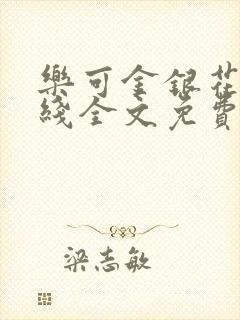 樂可金銀花
綫全文免費
梁志敏